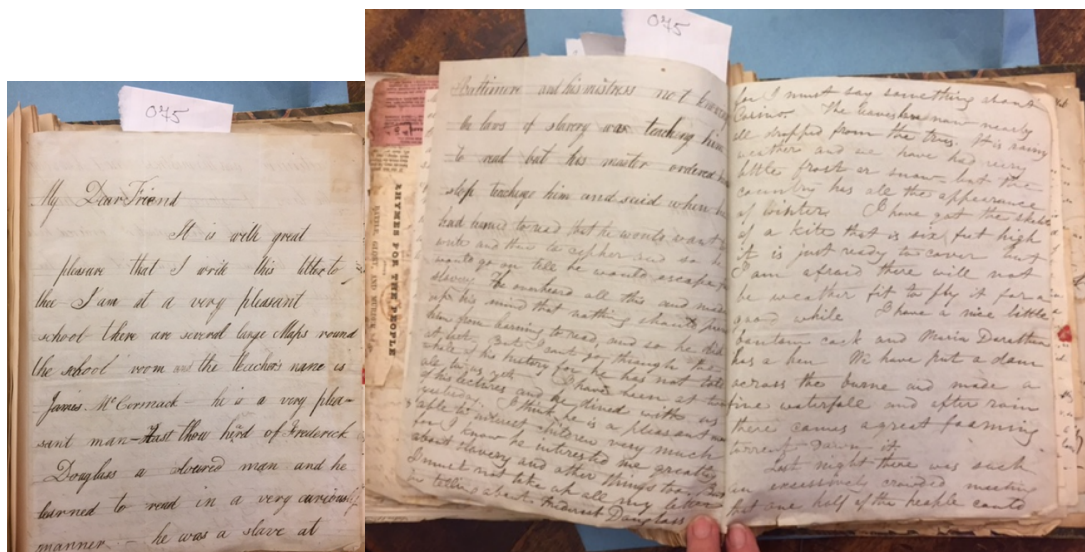 075
My Dear Friend
It is with great
pleasure that I write this letter to
thee I am at a very pleasant
school there are several large Maps round
the school room and the teacher's name is
James McCormack - he is a very plea-
sant man - Hast thou hird of Frederick
Douglass a coloured man and he
learned to read in a very curious
manner - he was a slave at
075
Baltimore and his mistress not
the laws of slavery was teaching him
to read but his master ordered
stop teaching him and said when
had learned to read that he would want to
write and then to cipher and so he
would go on till he would escape from
slavery. The overheard all this and made
up his mind that nothing should
him from learning to read, and so he did
at last. But I cant go through the
whole of his history for he has not told
all to us yet. I have been at two
of his lectures and he dined with us
yesterday. I think he is a pleasant man
able to interest children very much
for I know he interested me greatly
about slavery and other things too. But
I must not take up all my letter
in telling about Frederick Douglass
RHYMES FOR THE PEOPLE
for I must say something about
The leaves have now nearly
all dropped from the trees. It is rainy
weather and we have had very
little frost or snow but the
country has all the appearance
of winter. I have got the skeleton
of a kite that is six feet high
it is just ready to cover but
I am afraid there will not
be weather fit to fly it for a
good while. I have a nice little
bantam cock and Maria
has a hen. We have put a dam
across the burne and made a
fine waterfall and after rain
there comes a great foaming
torrent down it
Last night there was such
an excessively crowded meeting
that one half of the people could